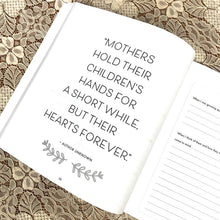 "MOTHERS
HOLD THEIR
CHILDREN'S
HANDS FOR
A SHORT WHILE,
BUT THEIR
HEARTS FOREVER."
- AUTHOR UNKNOWN